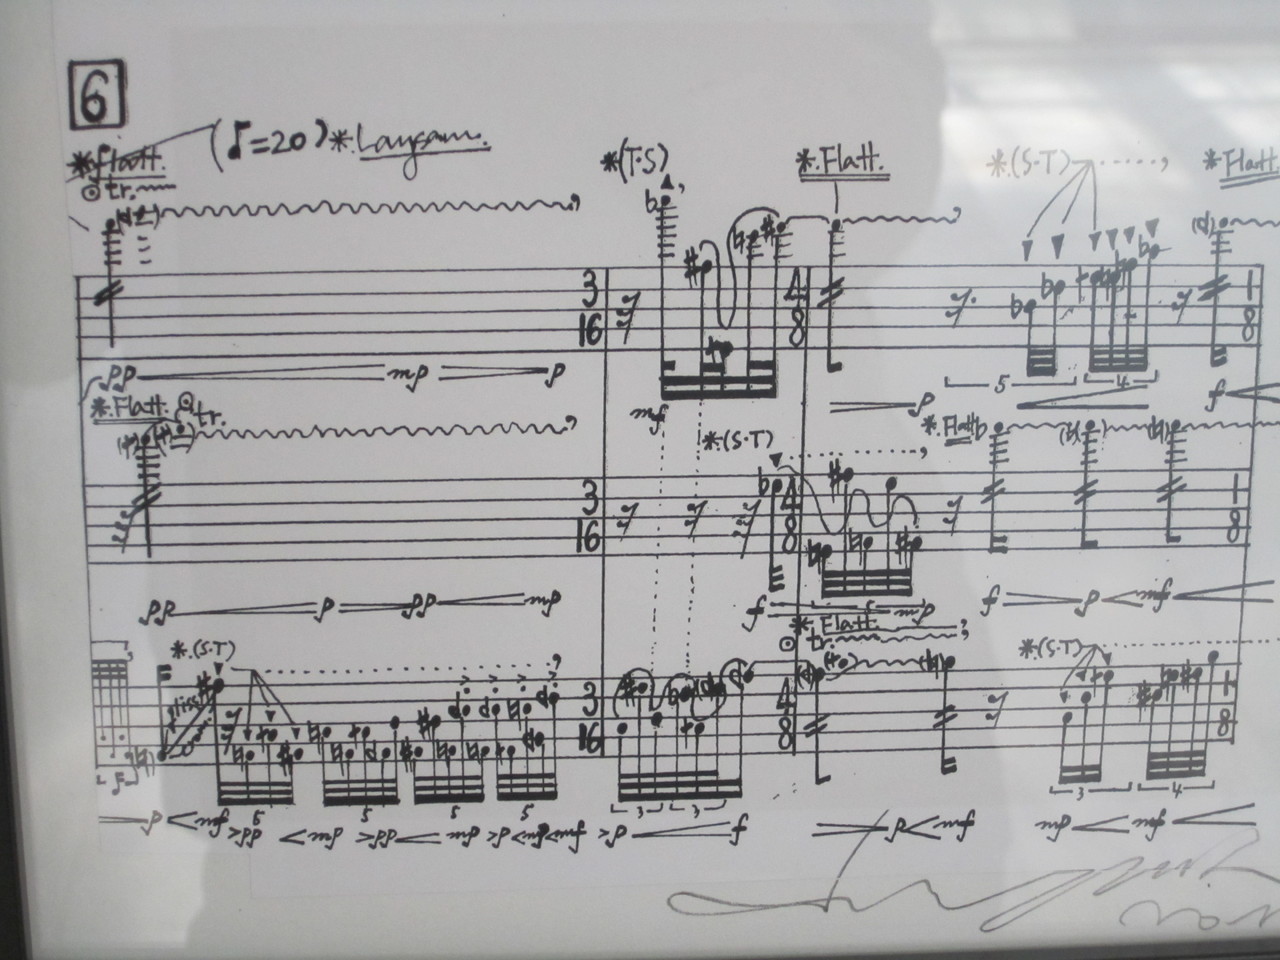 6
*.Flatt. (♪=20) *.Langsam. *(T·S) *.Flatt. *.(S·T) *.Flatt.
tr.
3 4 1
16 8 8
5 4
pp mp p mf p f
*.Flatt. tr. *.(S·T) *.Flatt.
3 4 1
16 8 8
pp p pp mp f f mp f p mf
*.(S·T) *.Flatt. *.(S·T)
tr.
gliss.
3 4 1
16 8 8
5 5 5 5 3 3 3 4
p mf pp mp pp mp p mp mf p f p mf mp mp